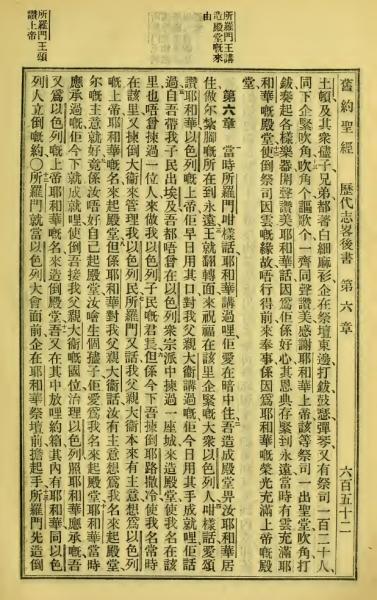 舊約聖經 歷代志畧後書 第六章 六百五十二
土頓及其衆儘子兄弟都著白細麻衫企在祭壇東邊打鈸鼓瑟彈琴又有祭司一百二十人
同下企緊吹角吹角个謳歌个一齊同聲讚美感謝耶和華上帝該等祭司一出聖堂吹角打
鈸奏起各樣樂器開聲讚美耶和華話因爲佢係好心其恩典存緊到永遠當時有雲充滿耶
和華嘅殿堂使倒祭司因雲嘅緣故唔行得前來奉事係因爲耶和華嘅榮光充滿上帝嘅殿
堂
第六章
當時所羅門咁樣話耶和華講過哩佢愛在暗中住吾造成殿堂畀汝耶和華居
住做尔紮腳嘅所在到永遠王就翻轉面來祝福在該里企緊嘅大衆以色列人咁樣話愛頌
讚耶和華以色列嘅上帝佢早日用其口對我父親大衛講過嘅佢今日用其手成就哩佢話
過自吾帶我子民出埃及吾都唔曾在以色列衆宗派中揀過一座城來造殿堂使我名在該
里也唔曾揀過一位人來做我以色列子民嘅君長但係今下吾揀倒耶路撒冷使我名常時
在該里又揀倒大衛來管理我以色列民所羅門又話我父親大衛本來有主意想爲以色列
嘅上帝耶和華嘅名來起殿堂但係耶和華對我父親大衛話汝有主意想爲我名來起殿堂
尔嘅主意就好竟係汝唔好自己起殿堂汝噲生個儘子佢愛爲我名來起殿堂耶和華當時
應承過嘅佢今下就成就哩使倒吾接我父親大衛嘅國位治理以色列照耶和華應承嘅吾
又爲以色列嘅上帝耶和華嘅名來造倒殿堂吾又在其中放哩約箱其內有耶和華同以色
列人立倒嘅約〇所羅門就當以色列大會面前企在耶和華祭壇前擔起手所羅門先造倒
所羅門王講
造殿堂嘅來
由
所羅門王頌
讚上帝